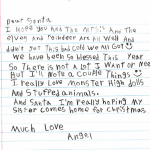 Dear Santa
I Hope you And the Mrs.s And The
elves and reindeer Are All Well And
didn't got this bad cold we All Got
We have been so blessed This Year
So There is not a lot I want or Need
But I'll Note a couple Things
I really Love Monster High dolls
And stuffed animals.
And Santa I'm really hoping my
Sister comes home for Christmas
Much Love
Angel